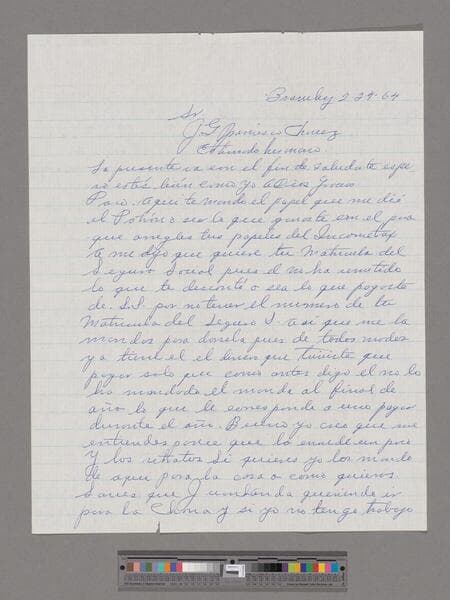 Brawley 2-24-64
Sr.
J. G Francisco Chavez
Estimado hermano.
La presente va con el fin de saludarte espe
ro estes bien como yo a Dios gracias
Paso. Aqui te mando el papel que me dió
el Patrón o sea lo que ganaste con el para
que arregles tus papeles del Incometax
te me dijo que quiere tu Matricula del
Seguro Social pues el no ha remitido
lo que te descontó o sea lo que pagaste
de S.S. por no tener el numero de tu
Matricula del Seguro S. asi que me la
mandas para darsela pues de todos modos
ya tiene el el dinero que tuviste que
pagar solo que como antes digo el no lo
ha mandado el manda al final de
año lo que le corresponde a uno pagar
durante el año. Bueno yo creo que me
entiendes porque lo enrede un poco
Y los retratos si quieres yo los mando
de aqui para la casa o como quieras.
Sabes que J anda queriendo ir
para la y si yo no tengo trabajo